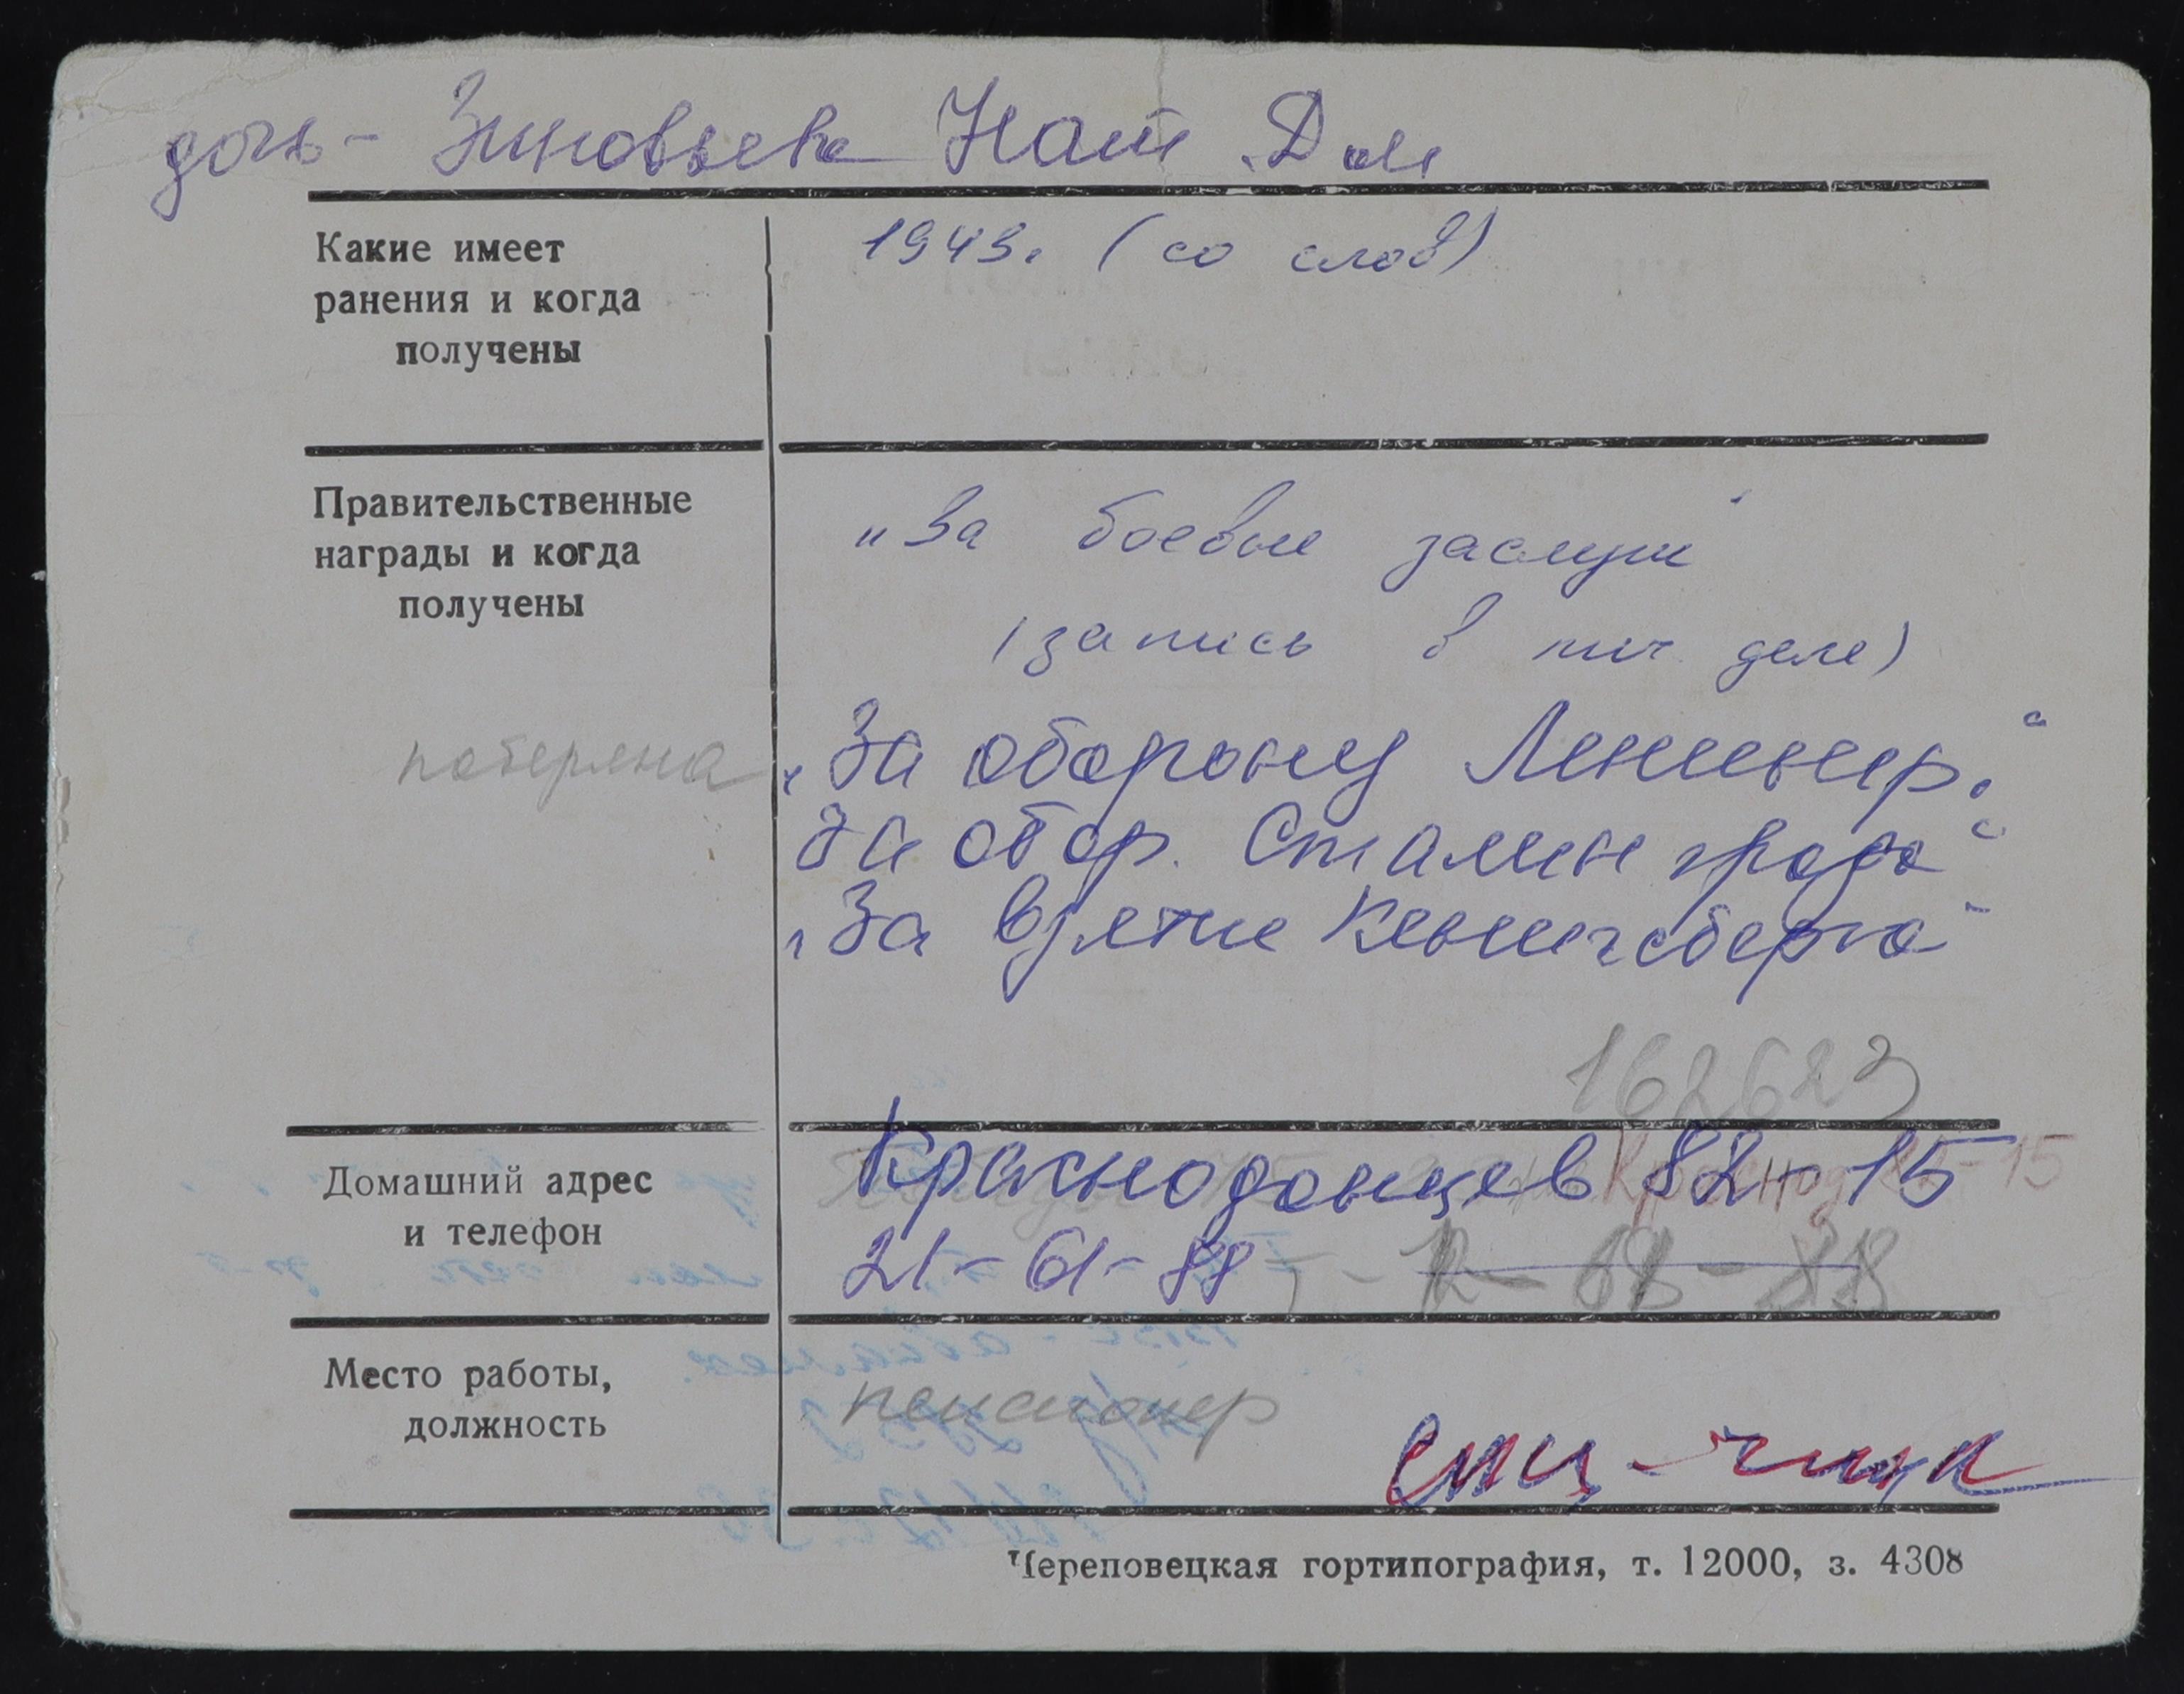 дочь - Зиновьева Нат. Дм.
Какие имеет
ранения и когда
получены
1943г (со слов)
Правительственные
награды и когда
получены
"За боевые заслуги"
(запись в лич. деле)
потеряна
"За оборону Ленингр."
За обор. Сталинграда"
"За взятие Кенигсберга"
162623
Домашний адрес
и телефон
Краснодонцев 82-15
Краснод 15
21-61-88
Место работы,
должность
пенсионер
Череповецкая гортипография, т. 12000, з. 4308